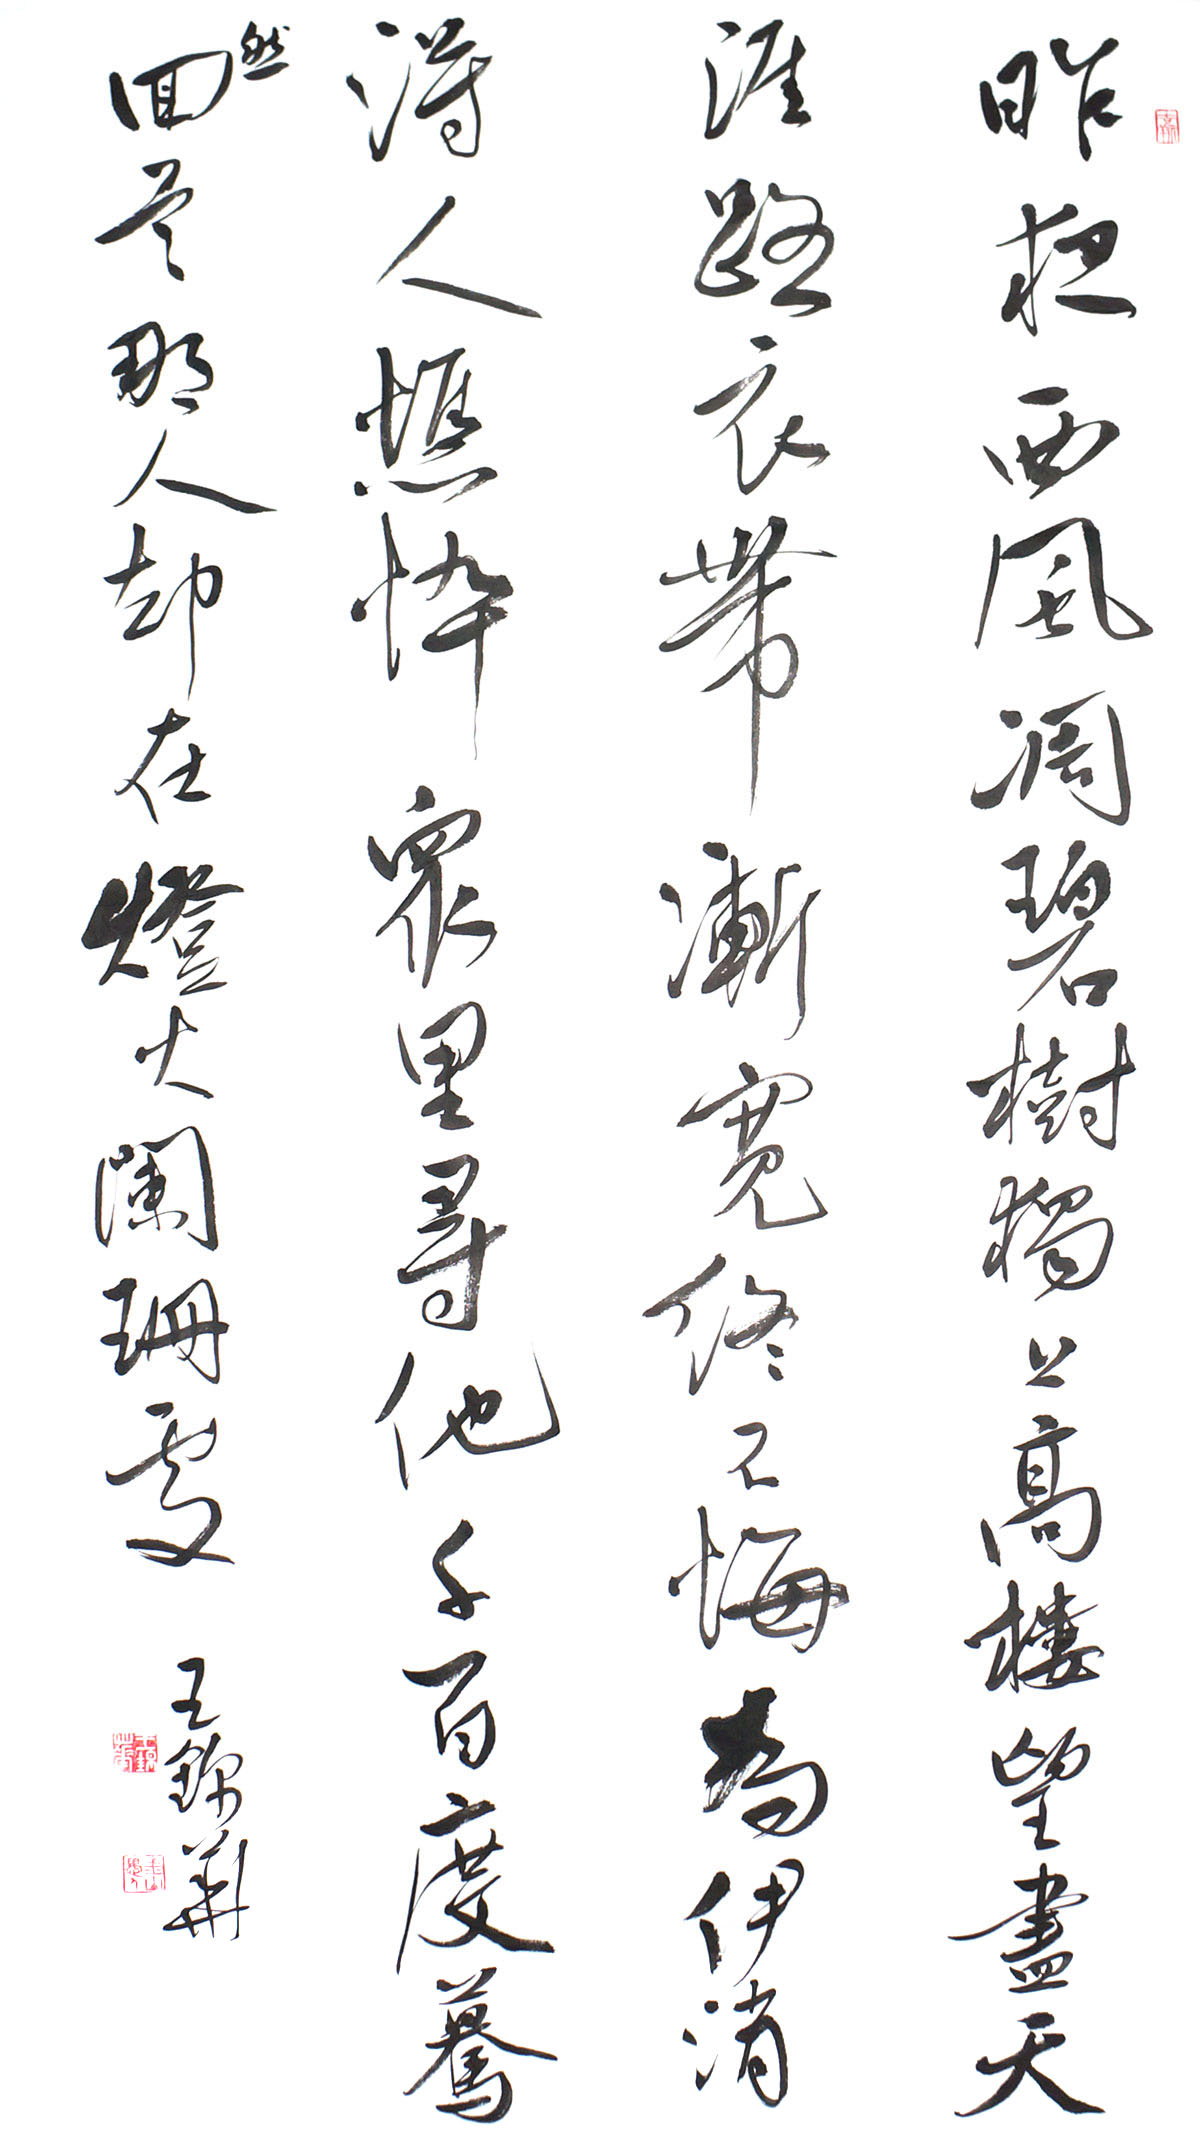 昨夜西風凋碧樹獨上高樓望盡天
涯路衣帶漸寬終不悔為伊消
得人憔悴眾里尋他千百度驀
然
回首那人却在燈火闌珊處
王錦華